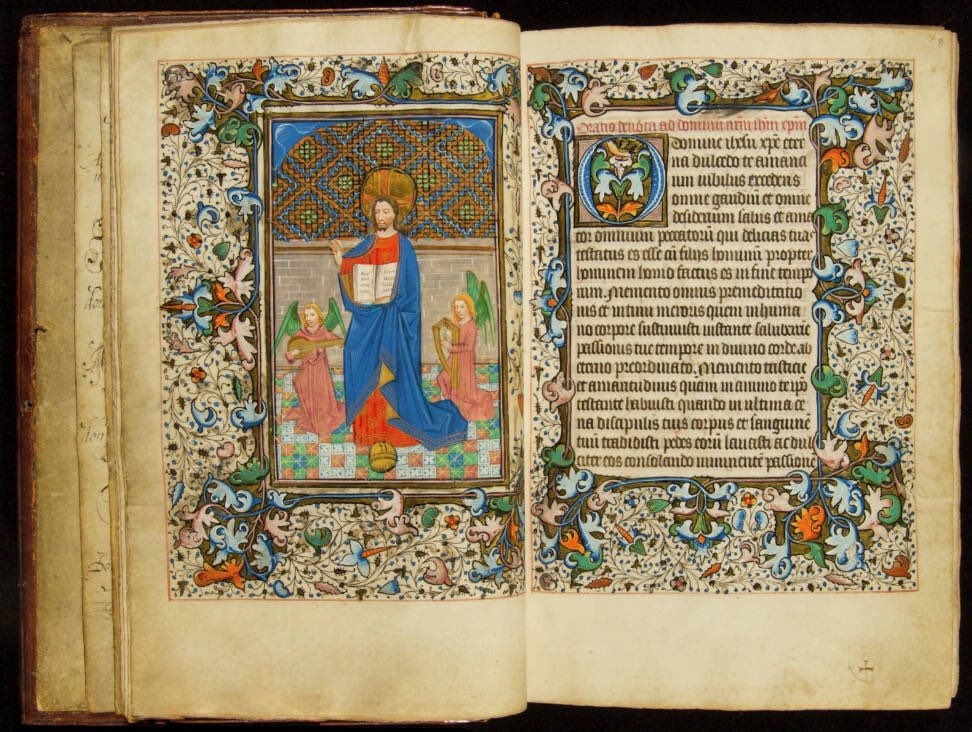 Oratio deuota ad dominū nr̄m ihm̄ xpm̄
O domine ihesu xp̄e eter
na dulcedo te amanc
ium iubilus excedens
omne gaudiū et omne
desiderium salus et ama
tor omnium peccatorū qui delicias tua
testatus es esse cū filijs hominū propter
hominem homo factus es in fine temp
rum. Memento omnis premeditatio
nis et intimi meroris quem in huma
no corpore sustinuisti instante saluberrīe
passionis tue tempore in diuino corde ab
eterno preordinato. Memento tristicie
et amaritudinis quam in animo te ip̄o
testante habuisti quando in ultima ce
na discipulis tuis corpus et sanguinē
tuū tradidisti pedes eorū lauasti ac dul
citer eos consolando imminentē passionē